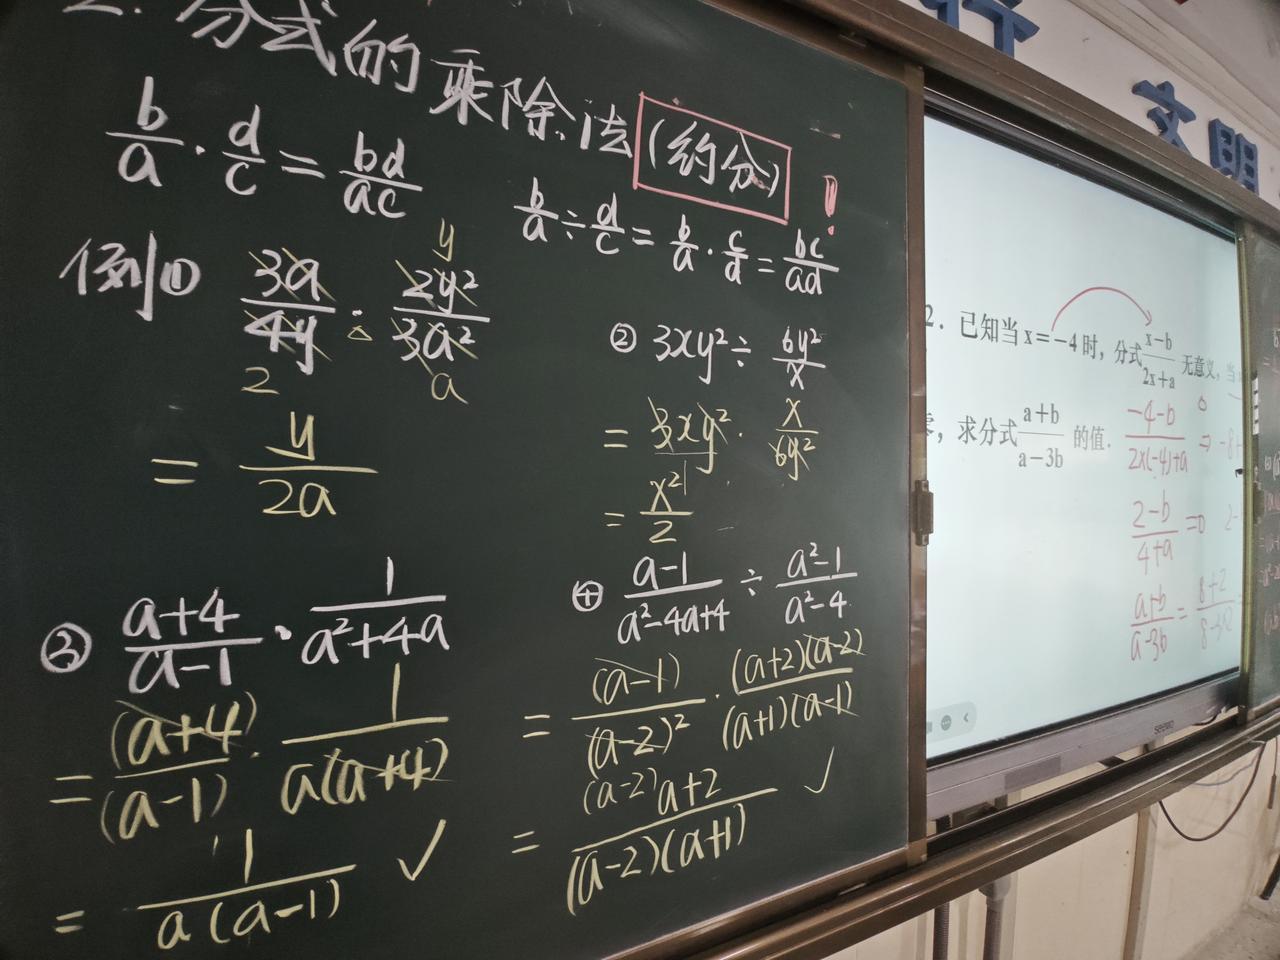 2. 分式的乘除法(约分)!
b/a · d/c = bd/ac
b/a ÷ d/c = b/a · c/d = bc/ad
例① 3a/4y · 2y²/3a²
y
2 a
= y/2a
② 3xy² ÷ 6y²/x
= 3xy² · x/6y²
= x²/2
③ a+4/a-1 · 1/a²+4a
= (a+4)/(a-1) · 1/a(a+4)
= 1/a(a-1) ✓
④ a-1/a²-4a+4 ÷ a²-1/a²-4
= (a-1)/(a-2)² · (a+2)(a-2)/(a+1)(a-1)
(a-2)
= a+2/(a-2)(a+1) ✓
文明
2. 已知当 x=-4 时, 分式 x-b/2x+a 无意义, 当
零, 求分式 a+b/a-3b 的值.
-4-b/2×(-4)+a ⇒ -8+
2-b/4+a =0 2-
a+b/a-3b = 8+2/8-3
seewo